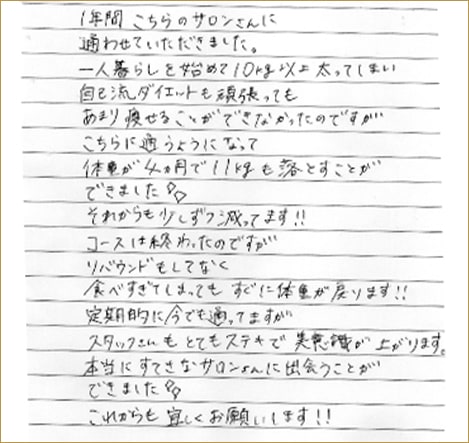 1年間 こちらのサロンさんに
通わせていただきました。
一人暮らしを始めて10kg以上太ってしまい
自己流ダイエットも頑張っても
あまり痩せることができなかったのですが
こちらに通うようになって
体重が4ヵ月で11kgも落とすことが
できました
それからも少しずつ減ってます!!
コースは終わったのですが
リバウンドもしてなく
食べすぎてしまっても すぐに体重が戻ります!!
定期的に今でも通ってますが
スタッフさんもとてもステキで 美意識が上がります。
本当にすてきなサロンさんに出会うことが
できました
これからも宜しくお願いします!!